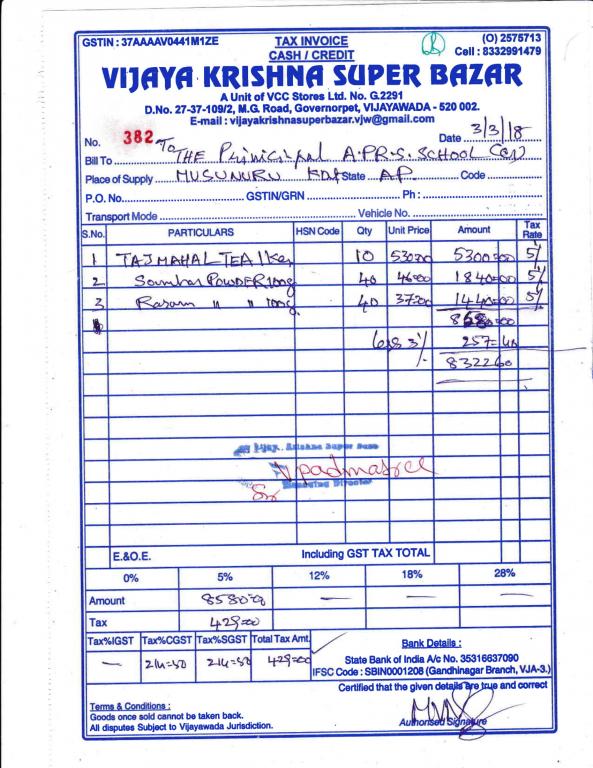 GSTIN : 37AAAAV0441M1ZE
TAX INVOICE
CASH / CREDIT
(O) 2575713
Cell : 8332991479
VIJAYA KRISHNA SUPER BAZAR
A Unit of VCC Stores Ltd. No. G.2291
D.No. 27-37-109/2, M.G. Road, Governorpet, VIJAYAWADA - 520 002.
E-mail : vijayakrishnasuperbazar.vjw@gmail.com
No. 382 Date 3/3/18
To
Bill To THE Principal A.P.R.S. SCHOOL
Place of Supply MUSUNURU State AP Code
P.O. No. GSTIN/GRN Ph :
Transport Mode Vehicle No.
S.No. PARTICULARS HSN Code Qty Unit Price Amount Tax Rate
1 TAJ MAHAL TEA 1Kg 10 530=00 5300=00 5%
2 Sambar POWDER 100g 40 46=00 1840=00 5%
3 Rasam " " 100g 40 37=00 1440=00 5%
8580=00
less 3% 257=40
832260
Vijaya Krishna Super Bazar
Vpadmasree
Managing Director
E.&O.E. Including GST TAX TOTAL
0% 5% 12% 18% 28%
Amount 8580=00 — — —
Tax 429=00
Tax%IGST Tax%CGST Tax%SGST Total Tax Amt.
— 214=50 214=50 429=00
Bank Details :
State Bank of India A/c No. 35316637090
IFSC Code : SBIN0001208 (Gandhinagar Branch, VJA-3.)
Certified that the given details are true and correct
Terms & Conditions :
Goods once sold cannot be taken back.
All disputes Subject to Vijayawada Jurisdiction.
Authorised Signature